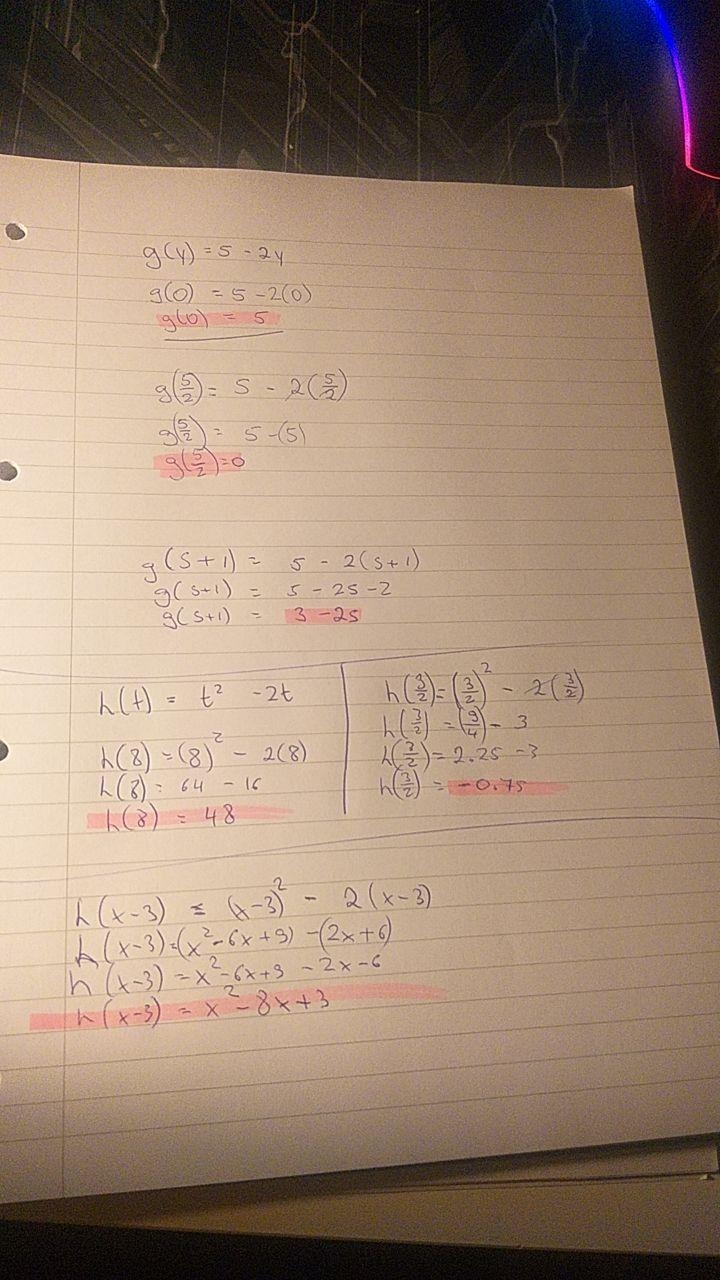 g(y) = 5 - 2y
g(0) = 5 - 2(0)
g(0) = 5
g(5/2) = 5 - 2(5/2)
g(5/2) = 5 - (5)
g(5/2) = 0
g(s+1) = 5 - 2(s+1)
g(s+1) = 5 - 2s - 2
g(s+1) = 3 - 2s
h(t) = t² - 2t
h(8) = (8)² - 2(8)
h(8) = 64 - 16
h(8) = 48
h(3/2) = (3/2)² - 2(3/2)
h(3/2) = (9/4) - 3
h(3/2) = 2.25 - 3
h(3/2) = -0.75
h(x-3) = (x-3)² - 2(x-3)
h(x-3) = (x² - 6x + 9) - (2x+6)
h(x-3) = x² - 6x + 9 - 2x - 6
h(x-3) = x² - 8x + 3